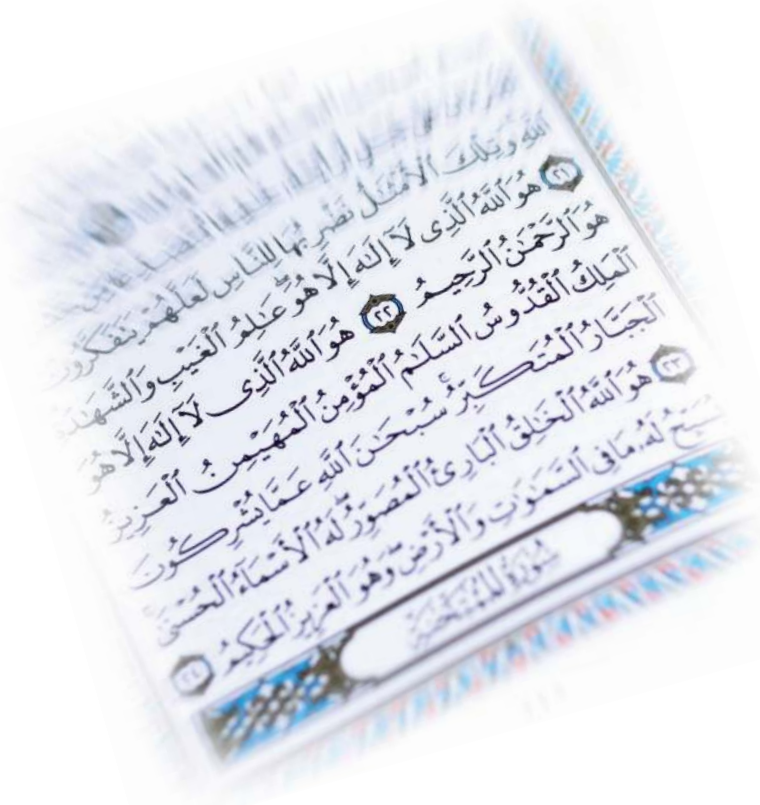 ٱللَّهِ وَتِلْكَ ٱلْأَمْثَـٰلُ نَضْرِبُهَا لِلنَّاسِ لَعَلَّهُمْ يَتَفَكَّرُونَ
٢١ هُوَ ٱللَّهُ ٱلَّذِى لَآ إِلَـٰهَ إِلَّا هُوَ ۖ عَـٰلِمُ ٱلْغَيْبِ وَٱلشَّهَـٰدَةِ
هُوَ ٱلرَّحْمَـٰنُ ٱلرَّحِيمُ ٢٢ هُوَ ٱللَّهُ ٱلَّذِى لَآ إِلَـٰهَ إِلَّا هُوَ
ٱلْمَلِكُ ٱلْقُدُّوسُ ٱلسَّلَـٰمُ ٱلْمُؤْمِنُ ٱلْمُهَيْمِنُ ٱلْعَزِيزُ
ٱلْجَبَّارُ ٱلْمُتَكَبِّرُ ۚ سُبْحَـٰنَ ٱللَّهِ عَمَّا يُشْرِكُونَ
٢٣ هُوَ ٱللَّهُ ٱلْخَـٰلِقُ ٱلْبَارِئُ ٱلْمُصَوِّرُ ۖ لَهُ ٱلْأَسْمَآءُ ٱلْحُسْنَىٰ ۚ
يُسَبِّحُ لَهُۥ مَا فِى ٱلسَّمَـٰوَٰتِ وَٱلْأَرْضِ ۖ وَهُوَ ٱلْعَزِيزُ ٱلْحَكِيمُ ٢٤
سُورَةُ ٱلْمُمْتَحَنَةِ